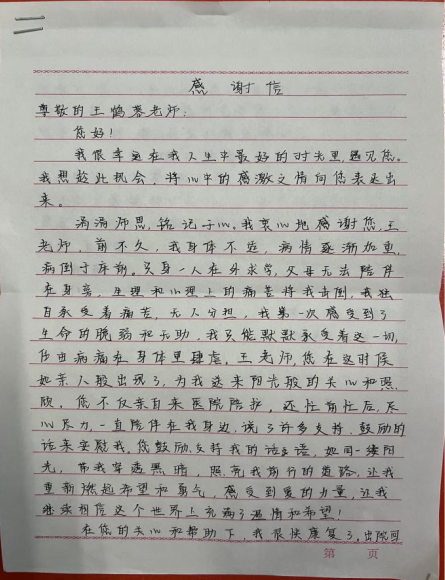 感谢信
尊敬的王鹤春老师:
您好!
我很幸运在我人生中最好的时光里,遇见您。
我想趁此机会,将心中的感激之情向您表达出
来。
涓涓师恩,铭记于心。我衷心地感谢您,王
老师,前不久,我身体不适,病情逐渐加重,
病倒于床期。只身一人在外求学,父母无法陪伴
在身旁,生理和心理上的痛苦将我击倒,我独
自承受着痛苦,无人分担,我第一次感受到了
生命的脆弱和无助,我只能默默承受着这一切,
任由病痛在身体里肆虐。王老师,您在这时候
如亲人般出现了,为我送来阳光般的关心和照
顾。您不仅亲自来医院陪护,还忙前忙后,尽
心尽力,一直陪伴在我身边,说了许多支持、鼓励的
话来安慰我,您鼓励、支持我的话语,如同一缕阳
光,带我穿透黑暗,照亮我前行的道路,让我
重新燃起希望和勇气,感受到爱的力量,让我
继续相信这个世界上充满了温情和希望!
在您的关心和帮助下,我很快康复了,出院回
第 页